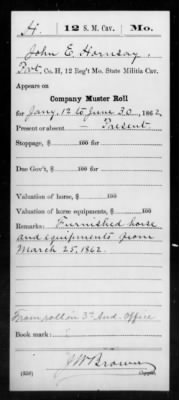 H. 12 S. M. Cav. Mo.
John E. Hornsay,
Pvt, Co. H, 12 Reg't Mo. State Militia Cav.
Appears on
Company Muster Roll
for Jany. 12 to June 30, 1862.
Present or absent – Present
Stoppage, $ 100 for
Due Gov't, $ 100
Valuation of horse, $ 100
Valuation of horse equipments, $ 100
Remarks: Furnished horse
and equipments from
March 25, 1862.
From roll in 3d Aud. Office
Book mark:
J W Brown
(358) Copyist.